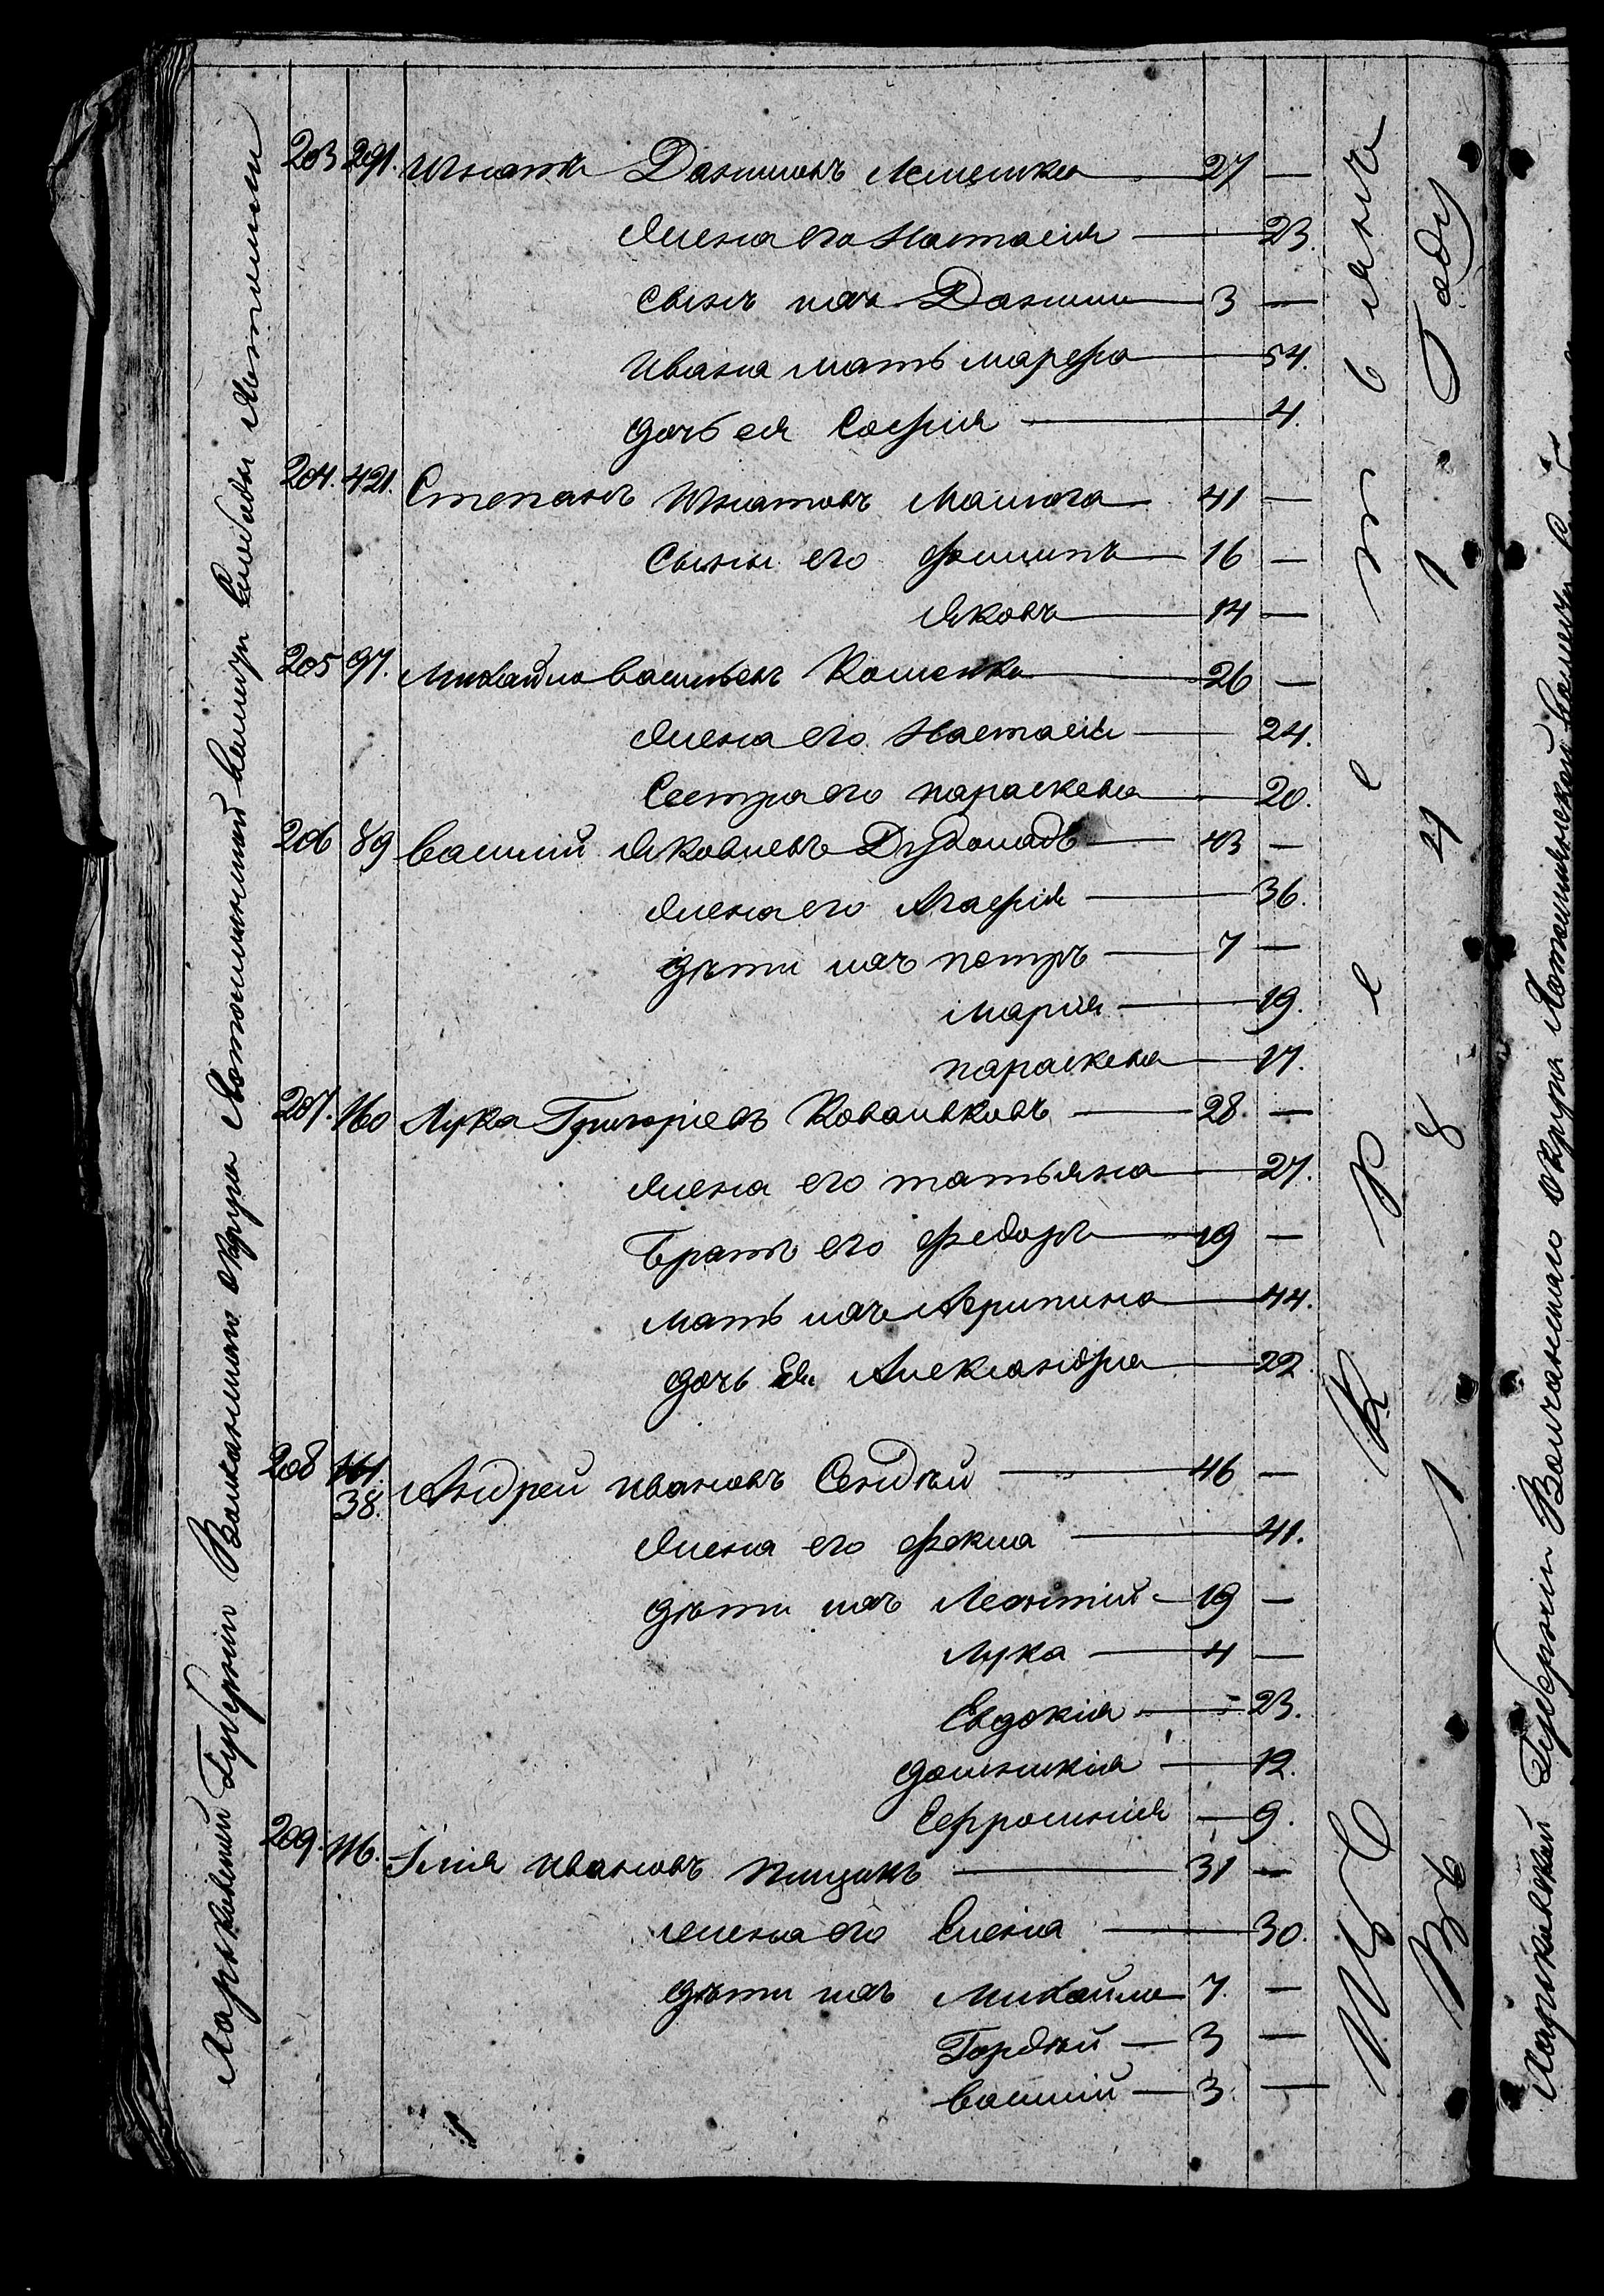 Харьковской Губернии Волчанскаго округа Хотомлянской волости Слободы Хотомли
203 291. Игнатъ Даниловъ Лемешко 27 —
Жена его Настасія 23.
Сынъ ихъ Данило 3 —
Ивана мать марфа 54.
дочь ея Софія 4.
204. 421. Степанъ Игнатовъ 41 —
Сыны его филипъ 16 —
Яковъ 14 —
205 97. Михайло васильевъ 26 —
Жена его Настасія 24.
Сестра его параскева 20.
206 89 василій Яковлевъ 43 —
Жена его Агафія 36.
дѣти ихъ петръ 7 —
Марія 19.
параскева 17.
207. 160 Лука Григоріевъ Ковальковъ 28. —
Жена его татьяна 27.
Братъ его федоръ 19 —
мать ихъ Агрипина 44.
дочь Ея Александра 22
208 161. Андрей ивановъ 46 —
38.
Жена его фекла 41.
дѣти ихъ Леонтій 19 —
Лука 4 —
Евдокія 23.
домникія 12.
Ефросинія 9.
209. 116. Илія ивановъ 31 —
жена его Елена 30.
дѣти ихъ Михайло 7. —
Гордѣй 3 —
василій 3. —
Изъ Крестьянъ
Въ 1841 Году
Харьковской Губерніи Волчанскаго округа Хотомлянской волости